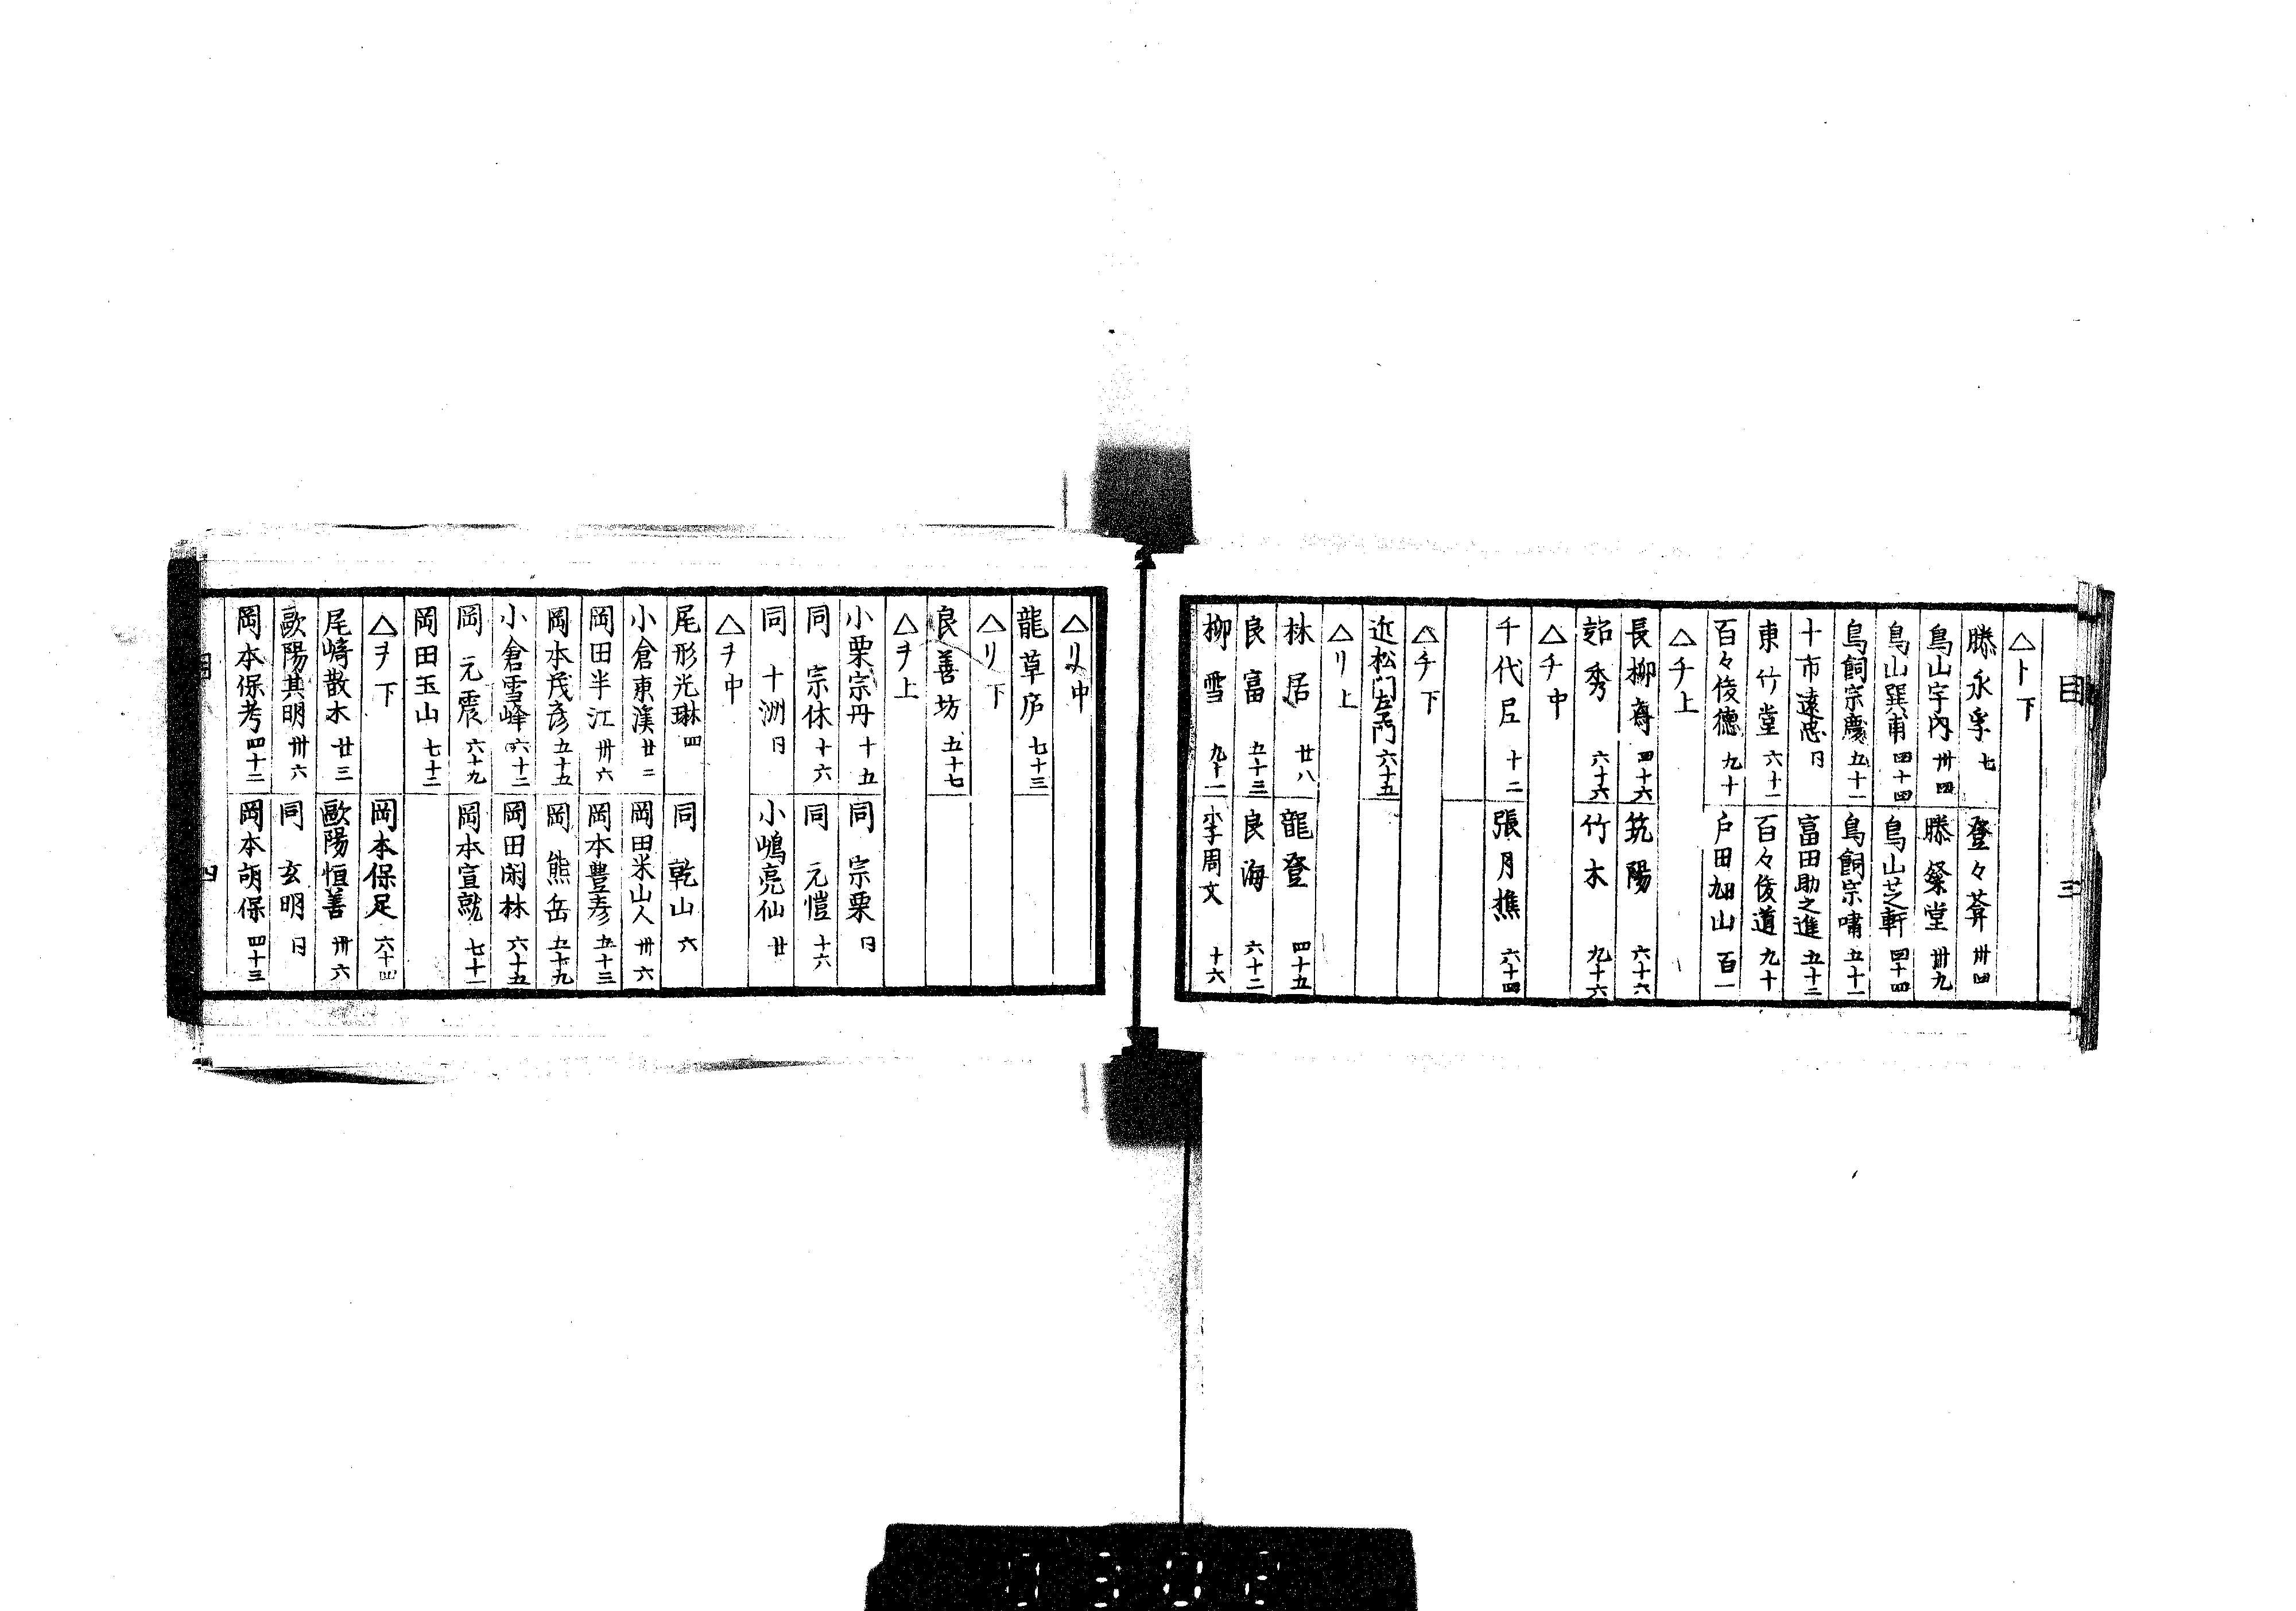 目 三
△ト下
滕永孚 七 登々葊 卅四
鳥山宇内 卅四 滕粲堂 卅九
鳥山巽甫 四十四 鳥山芝軒 四十四
鳥飼宗慶 五十一 鳥飼宗嘯 五十一
十市遠忠 冃 富田助之進 五十二
東竹堂 六十一 百々俊道 九十
百々俊德 九十 戸田旭山 百一
△チ上
長柳齋 四十六 筑陽 六十六
詔秀 六十六 竹木 九十六
△チ中
千代尼 十二 張月樵 六十四
△チ下
近松門左衛門 六十五
△リ上
林居 廿八 龍登 四十五
良富 五十三 良海 六十二
柳雪 九十一 李周文 十六
△リ中
龍草庐 七十三
△リ下
良善坊 五十七
△ヲ上
小栗宗丹 十五 同宗栗 冃
同宗休 十六 同元愷 十六
同十洲 冃 小嶋亮仙 廿
△ヲ中
尾形光琳 四 同乾山 六
小倉東溪 廿二 岡田米山人 卅六
岡田半江 卅六 岡本豊彦 五十三
岡本茂彦 五十五 岡熊岳 五十九
小倉雪峰 六十二 岡田閑林 六十五
岡元震 六十九 岡本宣就 七十一
岡田玉山 七十二
△ヲ下
岡本保足 六十四
尾﨑散木 廿三 歐陽恒善 卅六
歐陽其明 卅六 同玄明 冃
岡本保考 四十二 岡本萌保 四十三
目 四